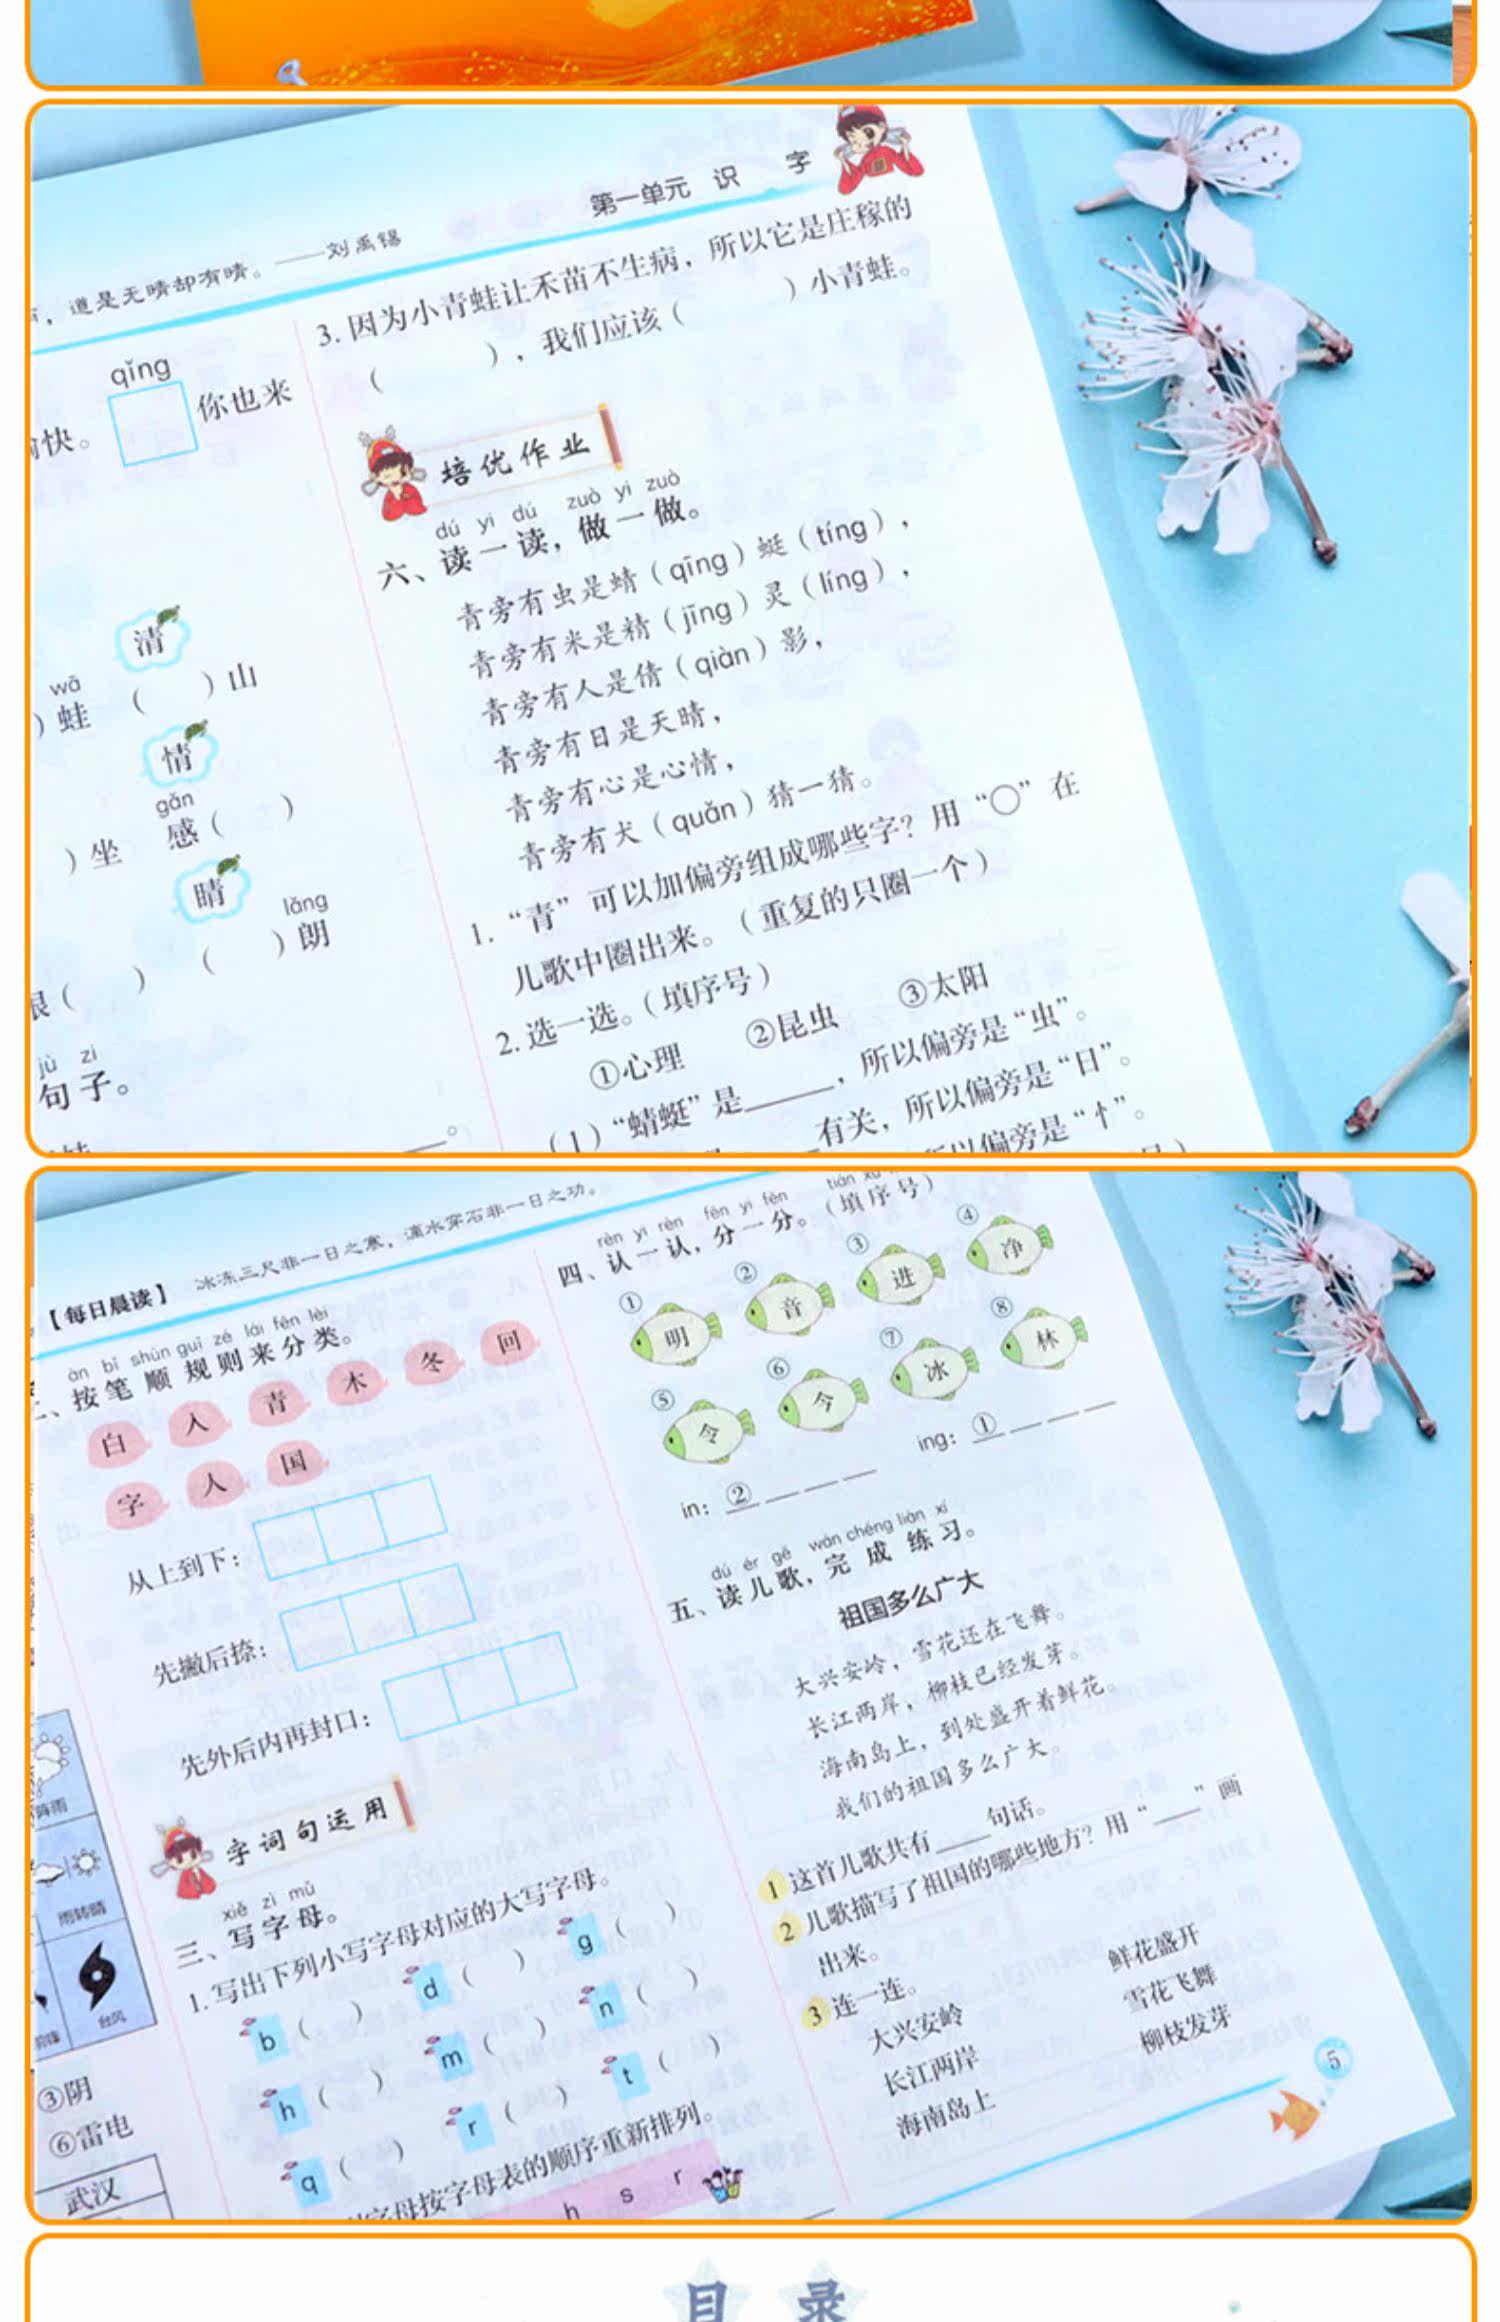 第一单元 识 字
，道是无晴却有晴。——刘禹锡
qǐng
快。
你也来
清
wā
）蛙 （ ）山
情
gǎn
）坐 感（ ）
晴
lǎng
（ ） （ ）朗
jù zi
句子。
。
3. 因为小青蛙让禾苗不生病，所以它是庄稼的
（ ），我们应该（ ）小青蛙。
培优作业
dú yi dú zuò yi zuò
六、读一读，做一做。
青旁有虫是蜻（qīng）蜓（tíng），
青旁有米是精（jīng）灵（líng），
青旁有人是倩（qiàn）影，
青旁有日是天晴，
青旁有心是心情，
青旁有犬（quǎn）猜一猜。
1. “青”可以加偏旁组成哪些字？用“○”在
儿歌中圈出来。（重复的只圈一个）
2. 选一选。（填序号）
①心理 ②昆虫 ③太阳
（1）“蜻蜓”是____，所以偏旁是“虫”。
____有关，所以偏旁是“日”。
所以偏旁是“忄”。
【每日晨读】 冰冻三尺非一日之寒，滴水穿石非一日之功。
àn bǐ shùn guī zé lái fēn lèi
二、按笔顺规则来分类。
白 入 青 木 冬 回
字 人 国
从上到下：
先撇后捺：
先外后内再封口：
字词句运用
xiě zì mǔ
三、写字母。
1. 写出下列小写字母对应的大写字母。
b（ ） d（ ） g（ ）
h（ ） m（ ） n（ ）
q（ ） r（ ） t（ ）
字母按字母表的顺序重新排列。
h s r
阵雨
雨转晴
台风
③阴
⑥雷电
武汉
rèn yi rèn fēn yi fēn
四、认一认，分一分。（填序号）
① 明 ② 音 ③ 进 ④ 净
⑤ 令 ⑥ 今 ⑦ 冰 ⑧ 林
in：② __ __ __ ing：① __ __ __
dú ér gē wán chéng liàn xí
五、读儿歌，完成练习。
祖国多么广大
大兴安岭，雪花还在飞舞。
长江两岸，柳枝已经发芽。
海南岛上，到处盛开着鲜花。
我们的祖国多么广大。
1 这首儿歌共有____句话。
2 儿歌描写了祖国的哪些地方？用“____”画
出来。
3 连一连。
大兴安岭 鲜花盛开
长江两岸 雪花飞舞
海南岛上 柳枝发芽
5
目 录